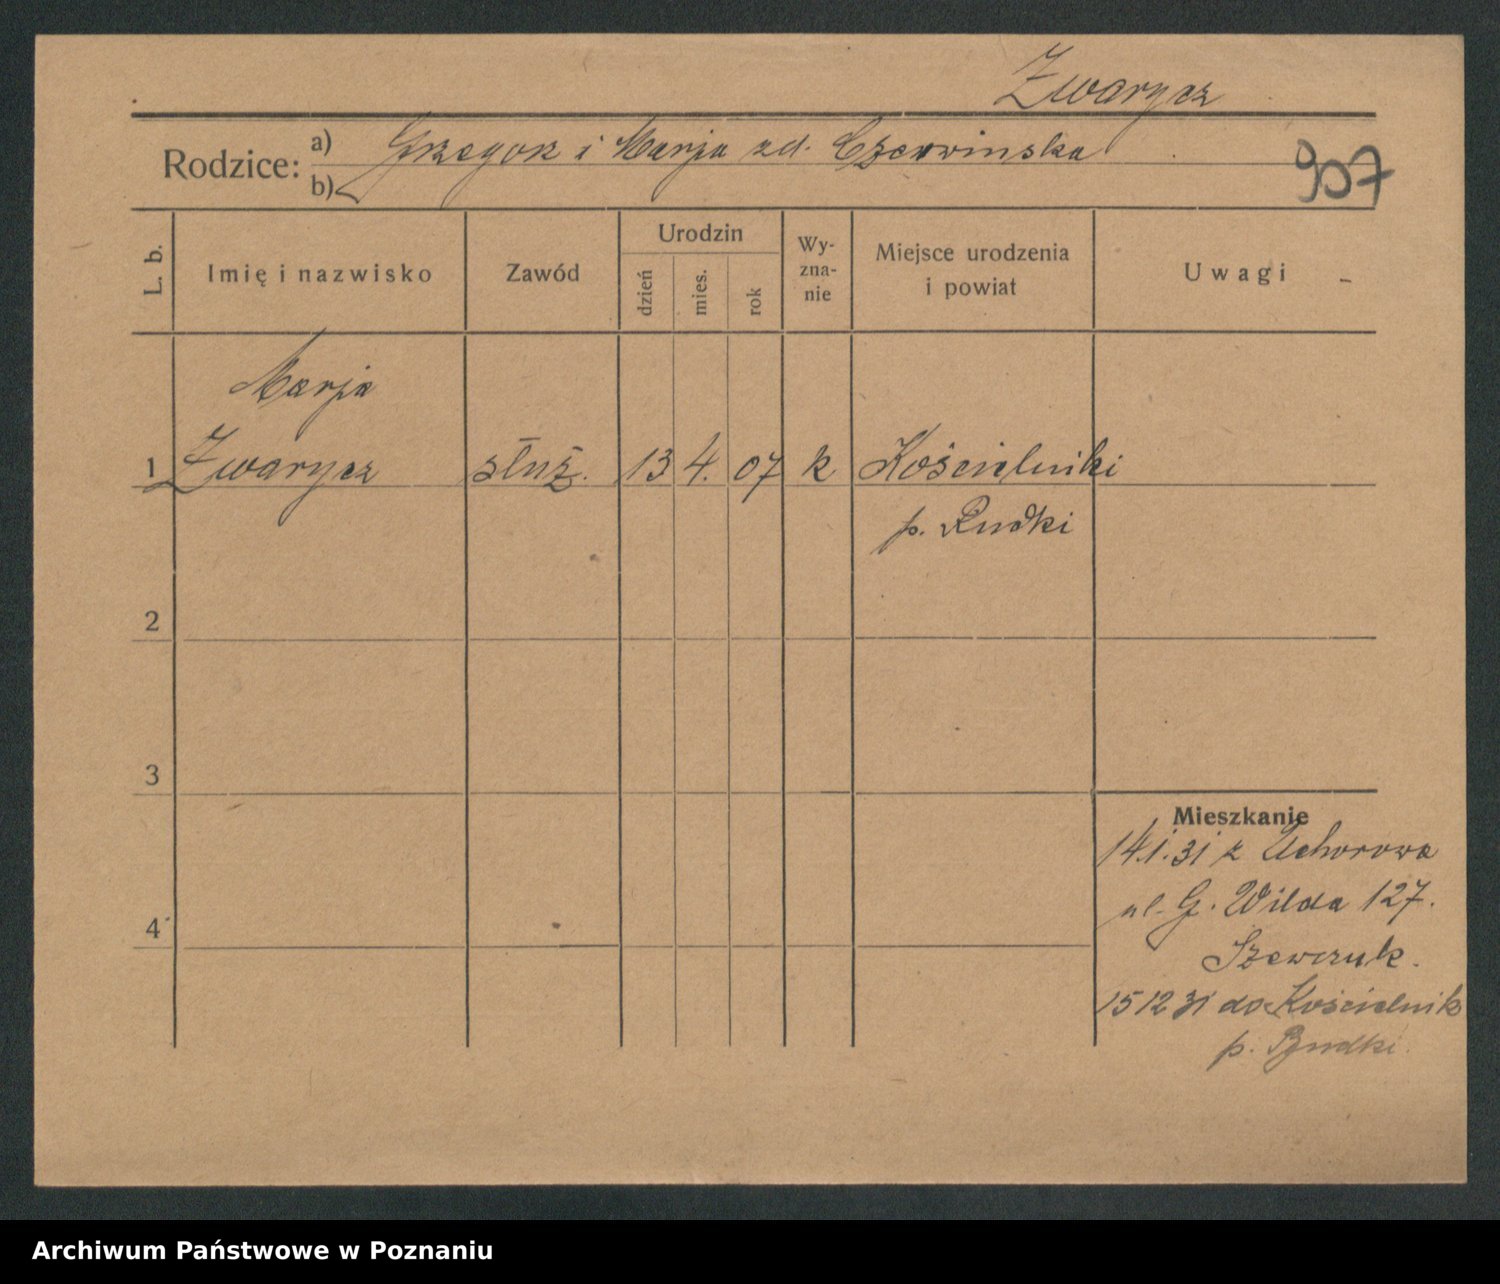 Zwarycz
Rodzice: a) Grzegorz i Marja zd. Czerwinska
b)
907
L. b.
Imię i nazwisko
Zawód
Urodzin
dzień
mies.
rok
Wy-
zna-
nie
Miejsce urodzenia
i powiat
Uwagi
Marja
1 Zwarycz służ. 13 4. 07 k Kościelniki
p. Rudki
2
3
4
Mieszkanie
14.1.31 z Uchorowa
ul. G. Wilda 127.
Szewczuk.
15 12 31 do Kościelnik
p. Rudki.
Archiwum Państwowe w Poznaniu